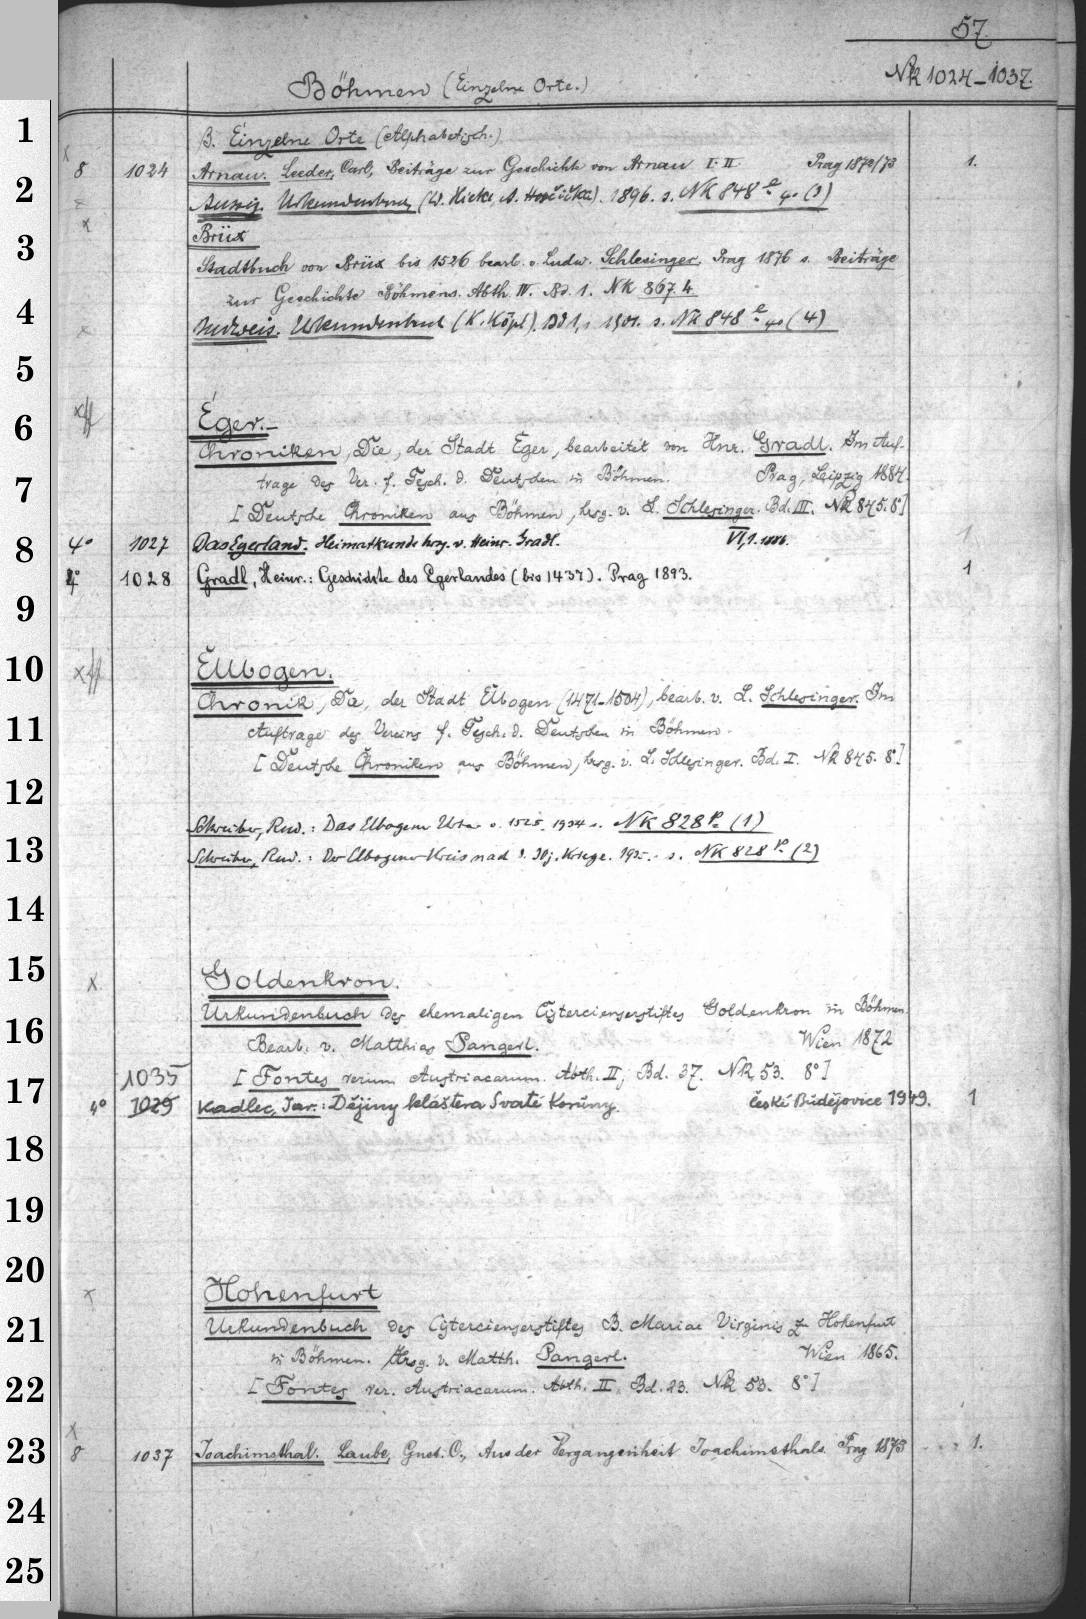 57.
Böhmen (Einzelne Orte.) Nk 1024-1037.
1
B. Einzelne Orte (Alphabetisch.)
x
8 1024 Arnau. Leeder, Carl, Beiträge zur Geschichte von Arnau I. II Prag 1872/73 1.
2
Aussig. Urkundenbuch (W. Hieke, A. Horčička). 1896. s. NK 848 e 4o (3)
x
Brüx
3
Stadtbuch von Brüx bis 1526 bearb. v. Ludw. Schlesinger, Prag 1876 s. Beiträge
zur Geschichte Böhmens. Abth. IV. Bd. 1. NK 867. 4.
4
x Budweis. Urkundenbuch (K. Köpl). Bd 1, 1901. s. NK 848 e 4o (4)
5
x
6
Eger.-
Chroniken, Die, der Stadt Eger, bearbeitet von Hnr. Gradl. Im Auf-
7
trage des Ver. f. Gesch. d. Deutschen in Böhmen. Prag, Leipzig 1884.
[Deutsche Chroniken aus Böhmen, hrsg. v. L. Schlesinger. Bd. III. NK 845. 8°]
8
4° 1027 Das Egerland. Heimatkunde hrsg. v. Heinr. Gradl. VI, 1. 1886. 1
4° 1028 Gradl, Heinr.: Geschichte des Egerlandes (bis 1437). Prag 1893. 1
9
10
x Ellbogen.
Chronik, Die, der Stadt Elbogen (1471-1504), bearb. v. L. Schlesinger. Im
11
Auftrage des Vereins f. Gesch. d. Deutschen in Böhmen.
[Deutsche Chroniken aus Böhmen, hrsg. v. L. Schlesinger. Bd. I. NK 845. 8°]
12
Schreiber, Rud.: Das Elbogener Urbar v. 1525. 1934 s. NK 828 p. (1)
13
Schreiber, Rud.: Der Elbogener Kreis nach d. 30j. Kriege. 1935. s. NK 828 p. (2)
14
15
x Goldenkron.
Urkundenbuch des ehemaligen Cistercienserstiftes Goldenkron in Böhmen.
16
Bearb. v. Matthias Pangerl. Wien 1872
1035 [Fontes rerum Austriacarum. Abth. II; Bd. 37. NK 53. 8°]
17
4° 1029 Kadlec, Jar.: Dějiny kláštera Svaté Koruny. České Budějovice 1949. 1
18
19
20
x Hohenfurt
21
Urkundenbuch des Cistercienserstiftes B. Mariae Virginis z. Hohenfurt
in Böhmen. Hrsg. v. Matth. Pangerl. Wien 1865.
22
[Fontes rer. Austriacarum. Abth. II. Bd. 23. NK 53. 8°]
x
23
8 1037 Joachimsthal. Laube, Gust. C., Aus der Vergangenheit Joachimsthals. Prag 1873 . . . 1.
24
25